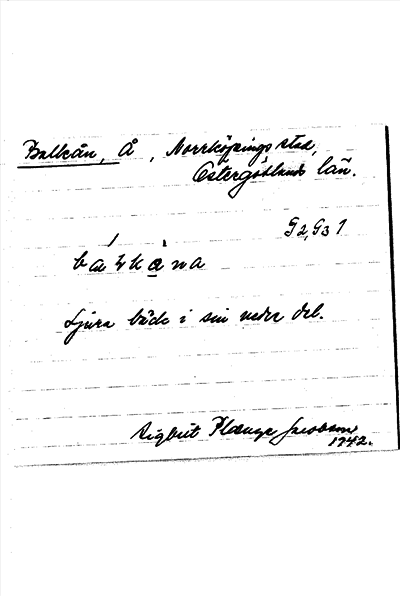 Balkån, Å, Norrköpings stad,
Östergötlands län.
G2, G3 1
balkana
Ljura bäck i sin nedre del.
Sigbrit Plænge Jacobson
1942.